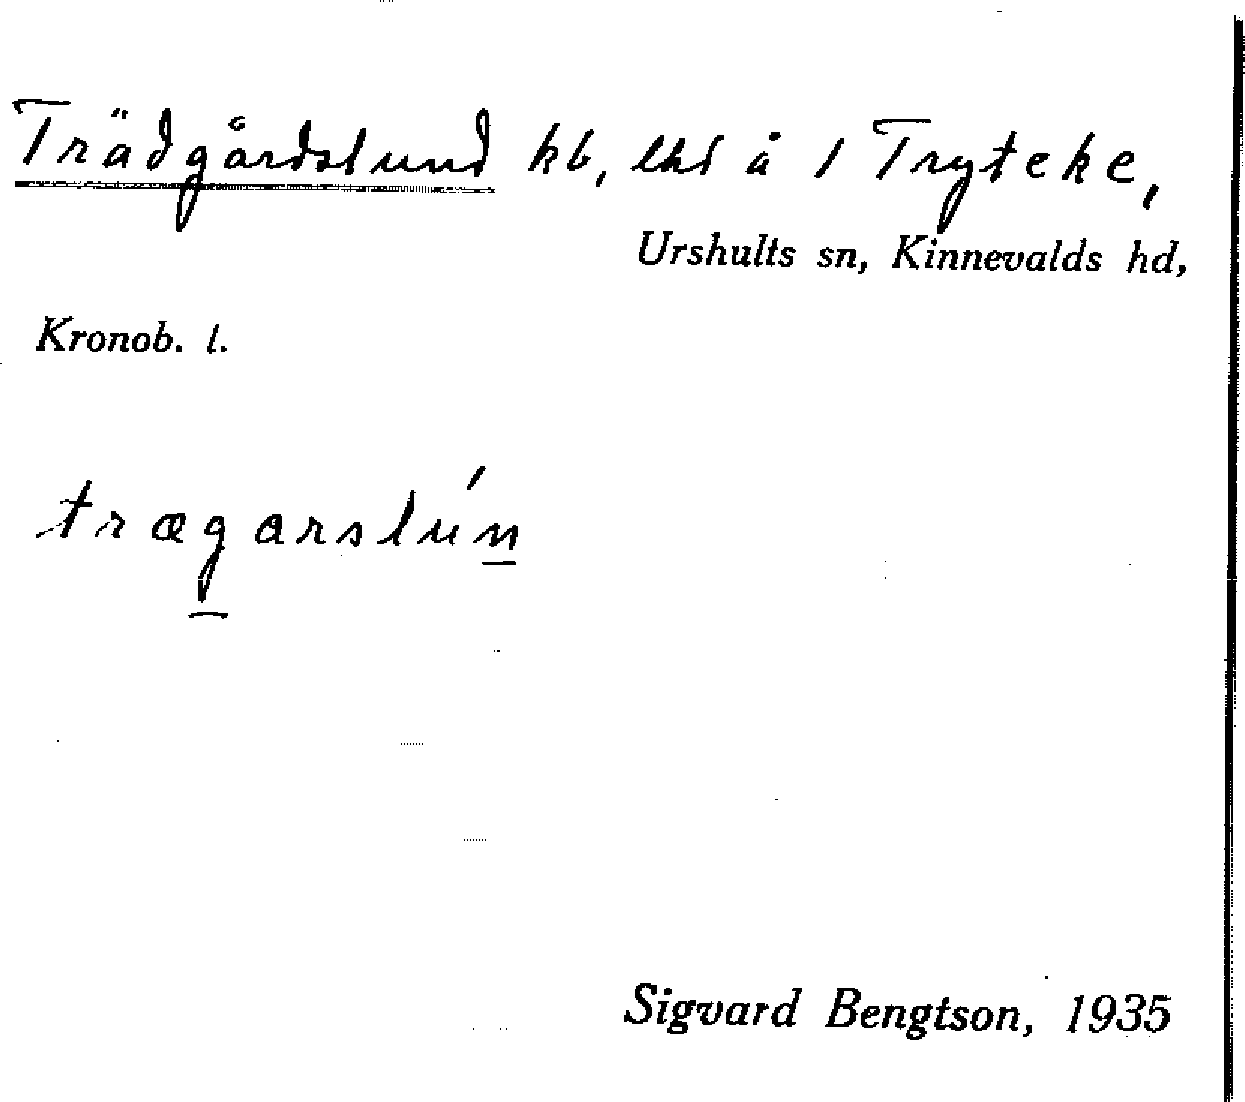 Trädgårdslund kb, lhl å 1 Tryteke,
Urshults sn, Kinnevalds hd,
Kronob. l.
trægarslún
Sigvard Bengtson, 1935